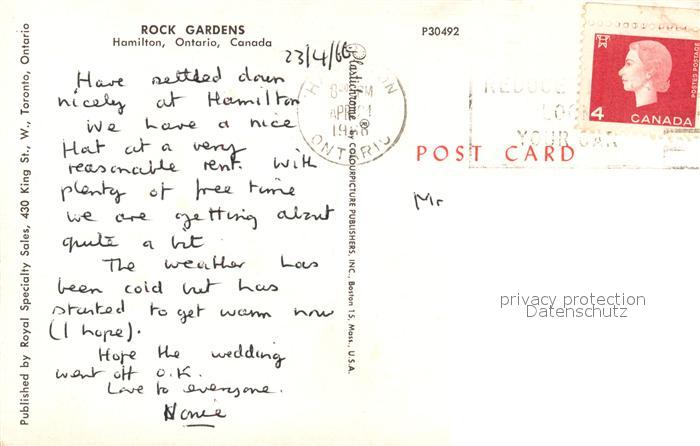 ROCK GARDENS
Hamilton, Ontario, Canada
P30492
23/4/66
Have settled down
nicely at Hamilton
We have a nice
Hat at a very
reasonable rent. With
plenty of free time
we are getting about
quite a bit.
The weather has
been cold but has
started to get warm now
(I hope).
Hope the wedding
went off O.K.
Love to everyone.
Published by Royal Specialty Sales, 430 King St., W., Toronto, Ontario
Plastichrome ® by COLOURPICTURE PUBLISHERS, INC., Boston 15, Mass., U.S.A.
ONTARIO
REDUCE
YOUR CAR
4
CANADA
POSTES POSTAGE
POST CARD
Mr
privacy protection
Datenschutz